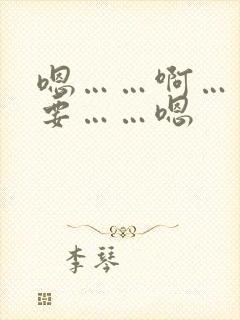 嗯……啊…
要……嗯
李琴